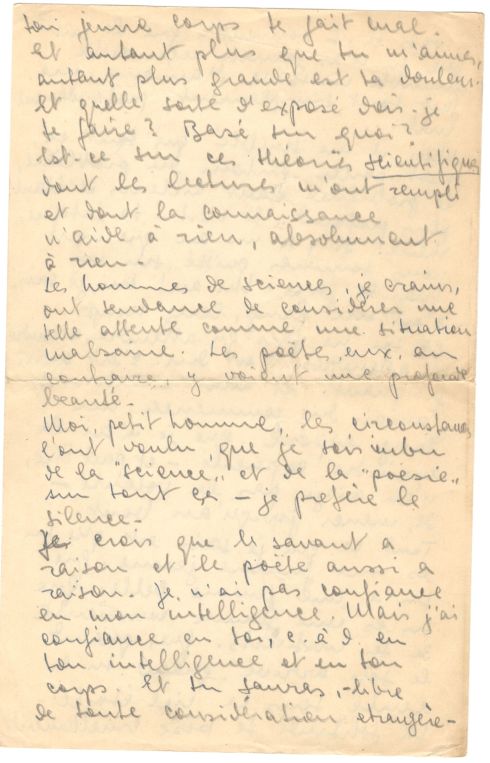 ton jeune corps te fait mal.
Et autant plus que tu m'aimes,
autant plus grande est ta douleur.
Et quelle sorte d'exposé dois-je
te faire? Basé sur quoi?
Est-ce sur ces théories scientifiques
dont les lectures m'ont rempli
et dont la connaissance
n'aide à rien, absolument
à rien.
Les hommes de sciences, je crains,
ont tendance de considérer une
telle attente comme une situation
malsaine. Les poëte, eux, au
contraire, y voient une profonde
beauté.
Moi, petit homme, les circonstances
l'ont voulu, que je sois imbu
de la "science" et de la "poésie"
sur tout ça - je préfère le
silence-
Je crois que le savant a
raison et le poëte aussi a
raison. Je n'ai pas confiance
en mon intelligence. Mais j'ai
confiance en toi, c.à d. en
ton intelligence et en ton
corps. Et tu sauras, -libre
de toute considération etrangère-